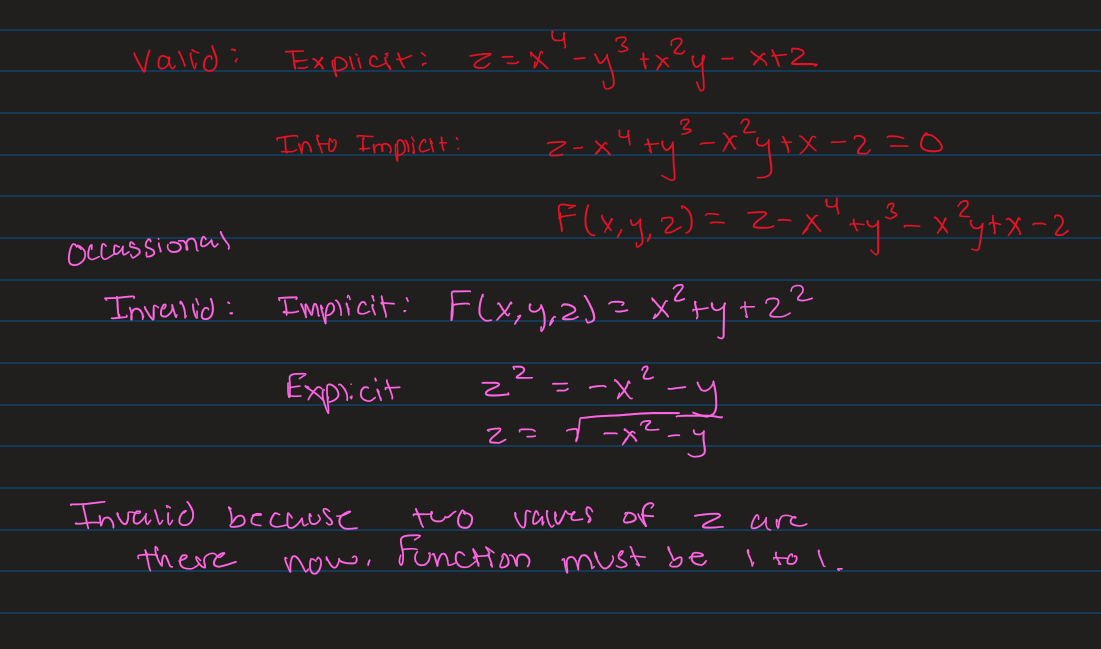 Valid: Explicit: z = x⁴ - y³ + x²y - x + 2
Into Implicit: z - x⁴ + y³ - x²y + x - 2 = 0
F(x, y, z) = z - x⁴ + y³ - x²y + x - 2
Occassional
Invalid: Implicit: F(x, y, z) = x² + y + z²
Explicit z² = -x² - y
z = √(-x² - y)
Invalid because two values of z are
there now. Function must be 1 to 1.